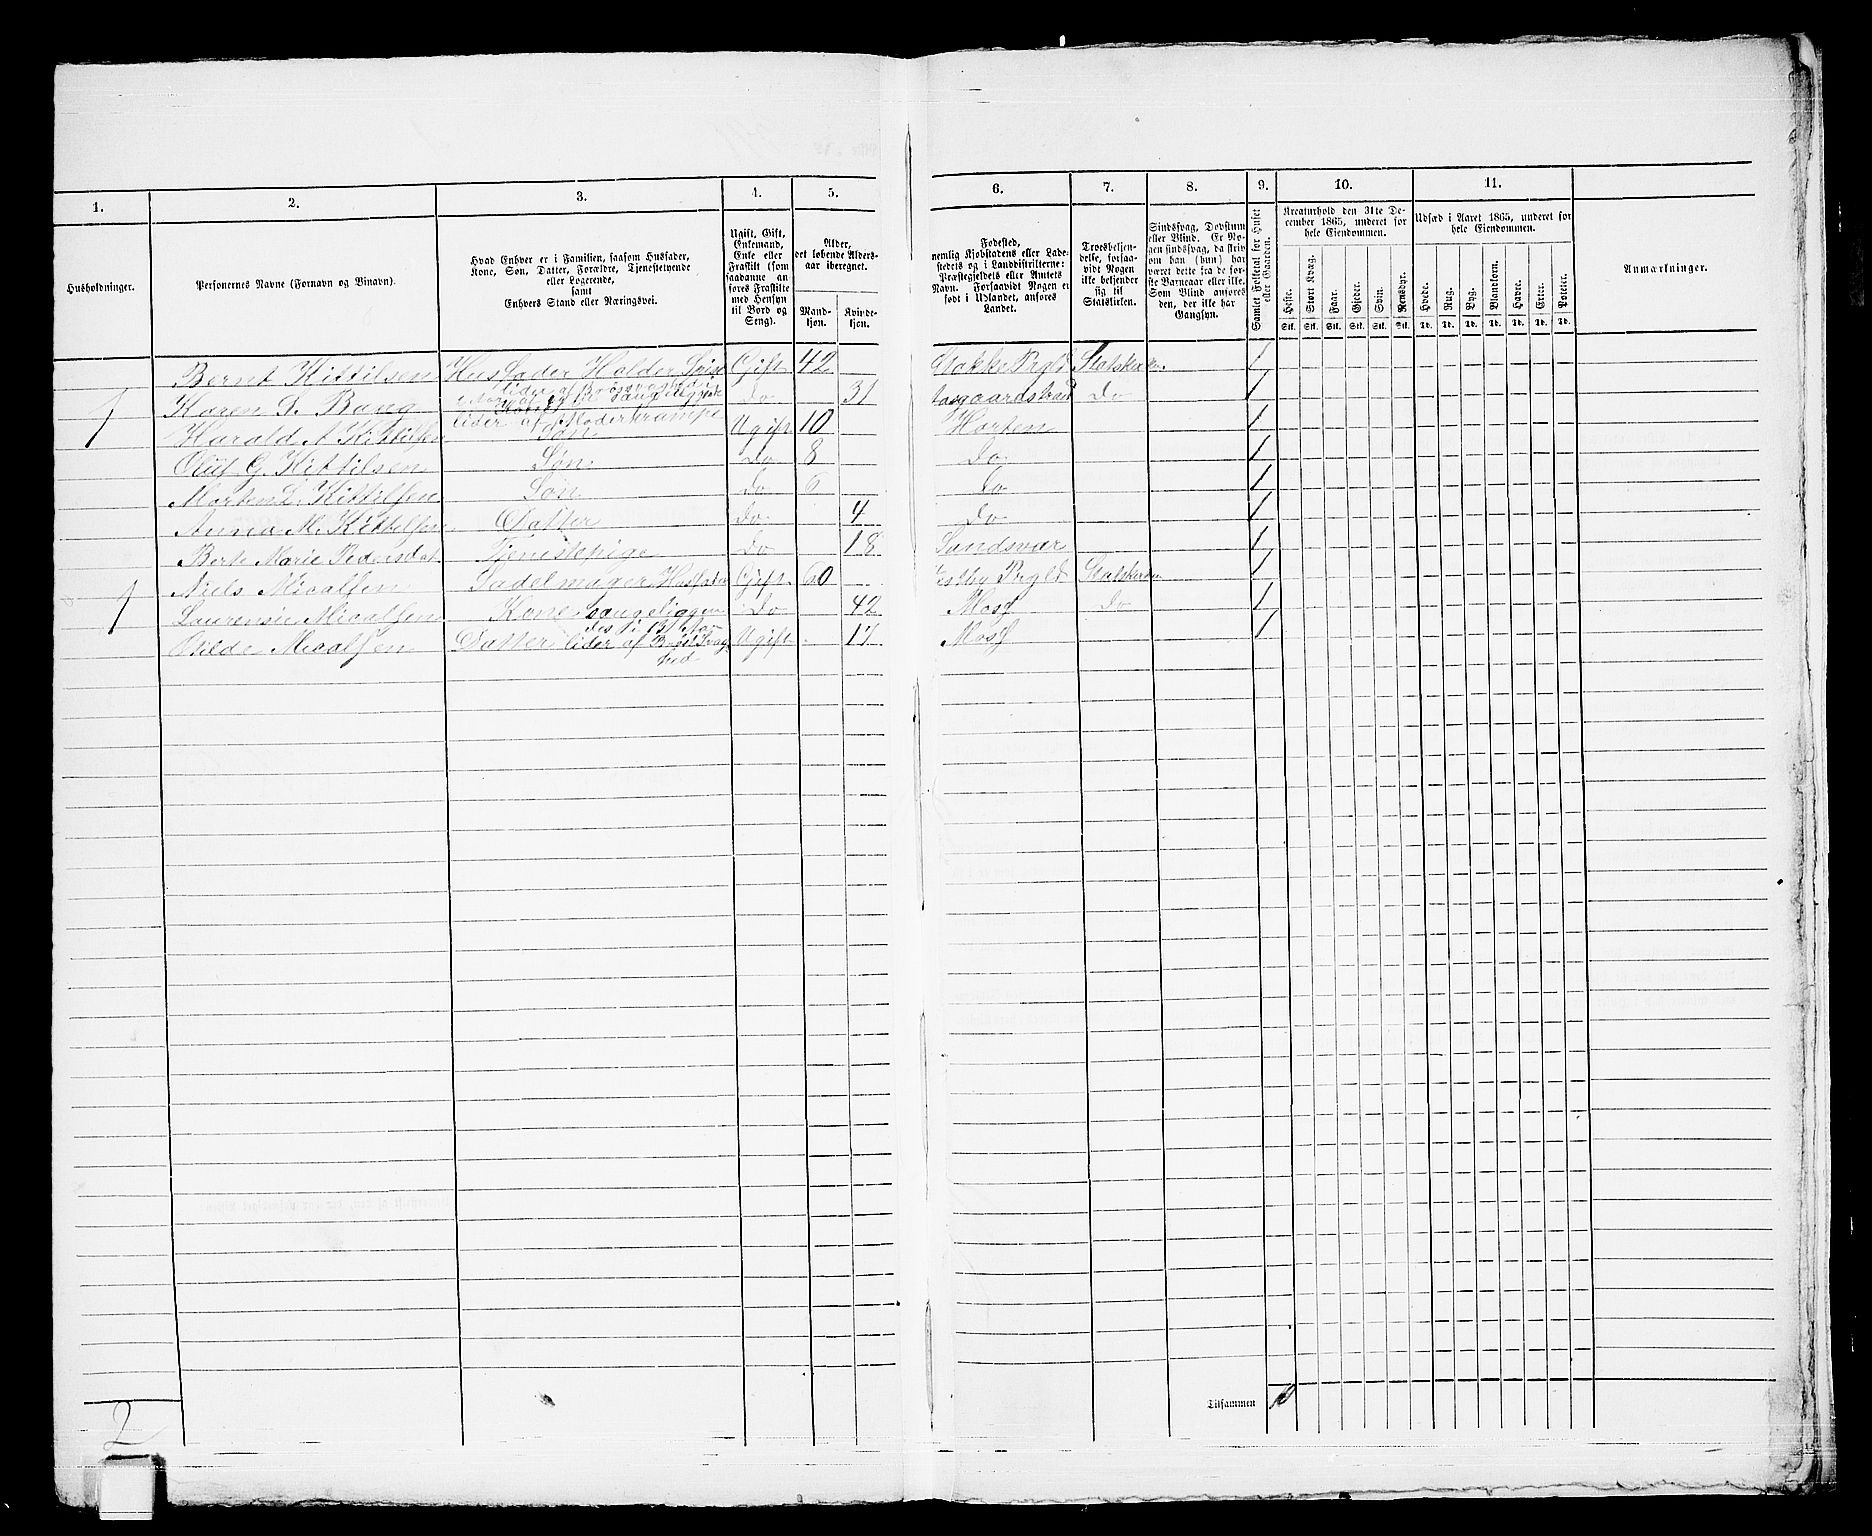 1. 2. 3. 4. 5. 6. 7. 8. 9. 10. 11.
Husholdninger.
Personernes Navne (Fornavn og Binavn).
Hvad Enhver er i Familien, saasom Husfader,
Kone, Søn, Datter, Forældre, Tjenestetyende
eller Logerende,
samt
Enhvers Stand eller Næringsvei.
Ugift, Gift,
Enkemand,
Enke eller
Fraskilt (som
saadanne an-
føres Fraskilte
med Hensyn
til Bord og
Seng).
Alder,
det løbende Alders-
aar iberegnet.
Mand-
kjøn.
Kvinde-
kjøn.
Fødested,
nemlig Kjøbstadens eller Lade-
stedets og i Landdistrikterne:
Præstegjeldets eller Annexets
Navn. Forsaavidt Nogen er
født i Udlandet, anføres
Landet.
Troesbekjen-
delse, forsaa-
vidt Nogen
ikke bekjender
sig til
Statskirken.
Sindssvag, Døvstum
eller Blind. Er No-
gen sindssvag, da skriv
om han (hun) har
været dette fra de før-
ste Barneaar eller ikke.
Som Blind anføres
den, der ikke har
Gangsyn.
Samlet Folketal for Huset
eller Gaarden.
Kreaturhold den 31te De-
cember 1865, underet for
hele Eiendommen.
Heste. Stort Kvæg. Faar. Gjeder. Svin. Rensdyr.
Stk. Stk. Stk. Stk. Stk. Stk.
Udsæd i Aaret 1865, underet for
hele Eiendommen.
Hvede. Rug. Byg. Blandkorn. Havre. Erter. Poteter.
Td. Td. Td. Td. Td. Td. Td.
Anmærkninger.
Bernt Kittilsen Husfader Holder Gift 42 Stokke Prgld Statskirken 1
1 Karen L. Bang Kone lider af Moderkrampe Do 31 Aasgaardstrand Do 1
Harald A Kittilsen Søn Ugift 10 Horten 1
Oluf G. Kittilsen Søn Do 8 Do 1
Morten L. Kittilsen Søn Do 6 Do 1
Anna M. Kittelsen Datter Do 4 Do 1
Berte Marie Pedersdat Tjenestepige Do 18 Sandsvær 1
1 Niels Micalsen Sadelmager Husfader Gift 60 Prgld Statskirken 1
Laurensie Micalsen Kone sængeliggen Do 42 Moss Do 1
des i 13 Maan
Otilde Micalsen Datter lider af Brøstsvag Ugift 17 Moss 1
hed
Tilsammen 10
2